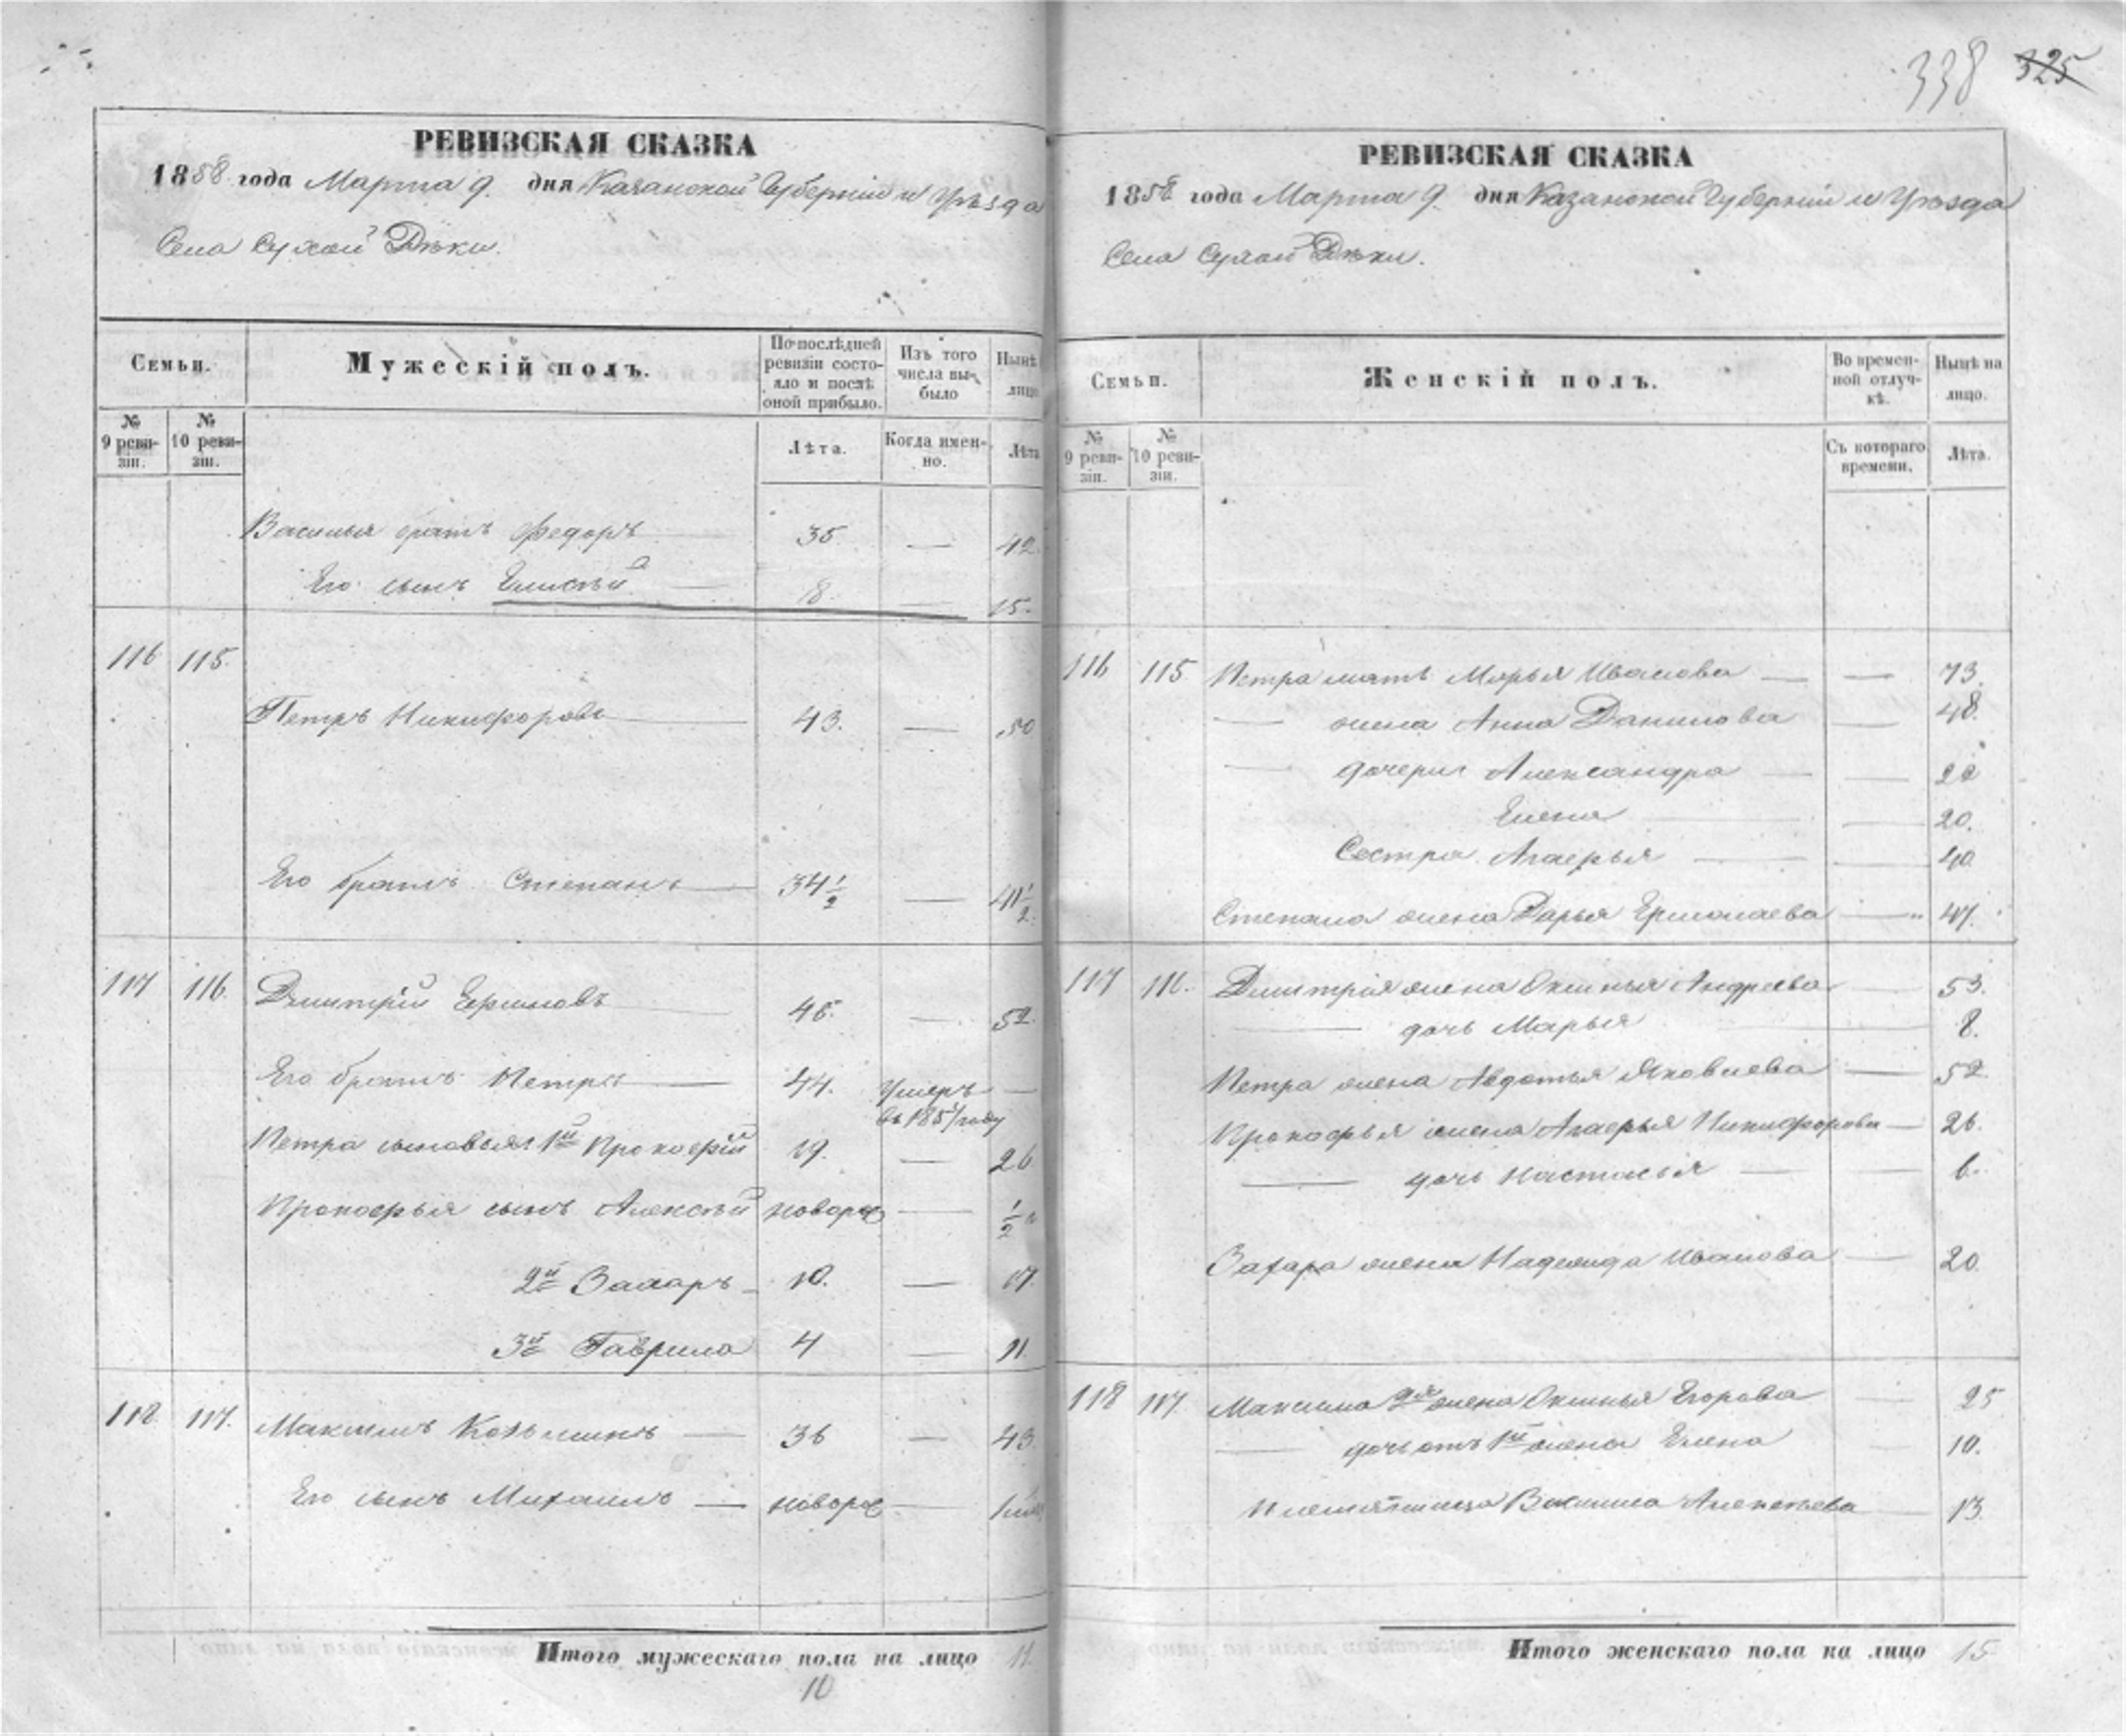 338 325
РЕВИЗСКАЯ СКАЗКА
1858 года Марта 9. дня Казанской Губерніи и Уѣзда
Села Сухой Рѣки.
Семьи.
Мужескій полъ.
По послѣдней ревизіи состояло и послѣ оной прибыло.
Изъ того числа выбыло
Нынѣ лицо
№ 9 ревизіи.
№ 10 ревизіи.
Лѣта.
Когда именно.
Лѣта
Василья братъ Федоръ 35 — 42.
Его сынъ Елисѣй 8. — 15.
116 115.
Петръ Никифоровъ 43. — 50
Его братъ Степанъ 34 1/2 — 41 1/2.
117 116. Дмитрій Ефимовъ 45. — 52.
Его братъ Петръ 44. Умеръ —
въ 1851 году
Петра сыновья 1й Прокофій 19. — 26
Прокофья сынъ Алексѣй новорож — 1/2
2й Захаръ 10. — 17.
3й Гаврила 4 — 11.
118. 117. Максимъ Козьминъ — 36 — 43.
Его сынъ Михаилъ — новорож —
Итого мужескаго пола на лицо 11.
10
РЕВИЗСКАЯ СКАЗКА
1858 года Марта 9. дня Казанской Губерніи и Уѣзда
Села Сухой Рѣки.
Семьи.
Женскій полъ.
Во временной отлучкѣ.
Нынѣ на лицо.
№ 9 ревизіи.
№ 10 ревизіи.
Съ котораго времени.
Лѣта.
116 115 Петра мать Марья Иванова — — 73.
— жена Анна Данилова — 48.
— дочери Александра — — 22
Елена — — 20.
Сестра Агафья — — 40
Степана жена Дарья Ермолаева — 47.
117 116. Дмитрія жена Оксинья Андреева — 53.
— дочь Марья — 8.
Петра жена Авдотья Яковлева — 52.
Прокофья жена Агафья Никифорова — 26.
— дочь Настасья — — 6.
Захара жена Надежда Иванова — 20.
118 117. Максима 2я жена Оксинья Егорова — 25
— дочь отъ 1й жены Елена — 10.
Племянница Алексѣева — 13.
Итого женскаго пола на лицо 15